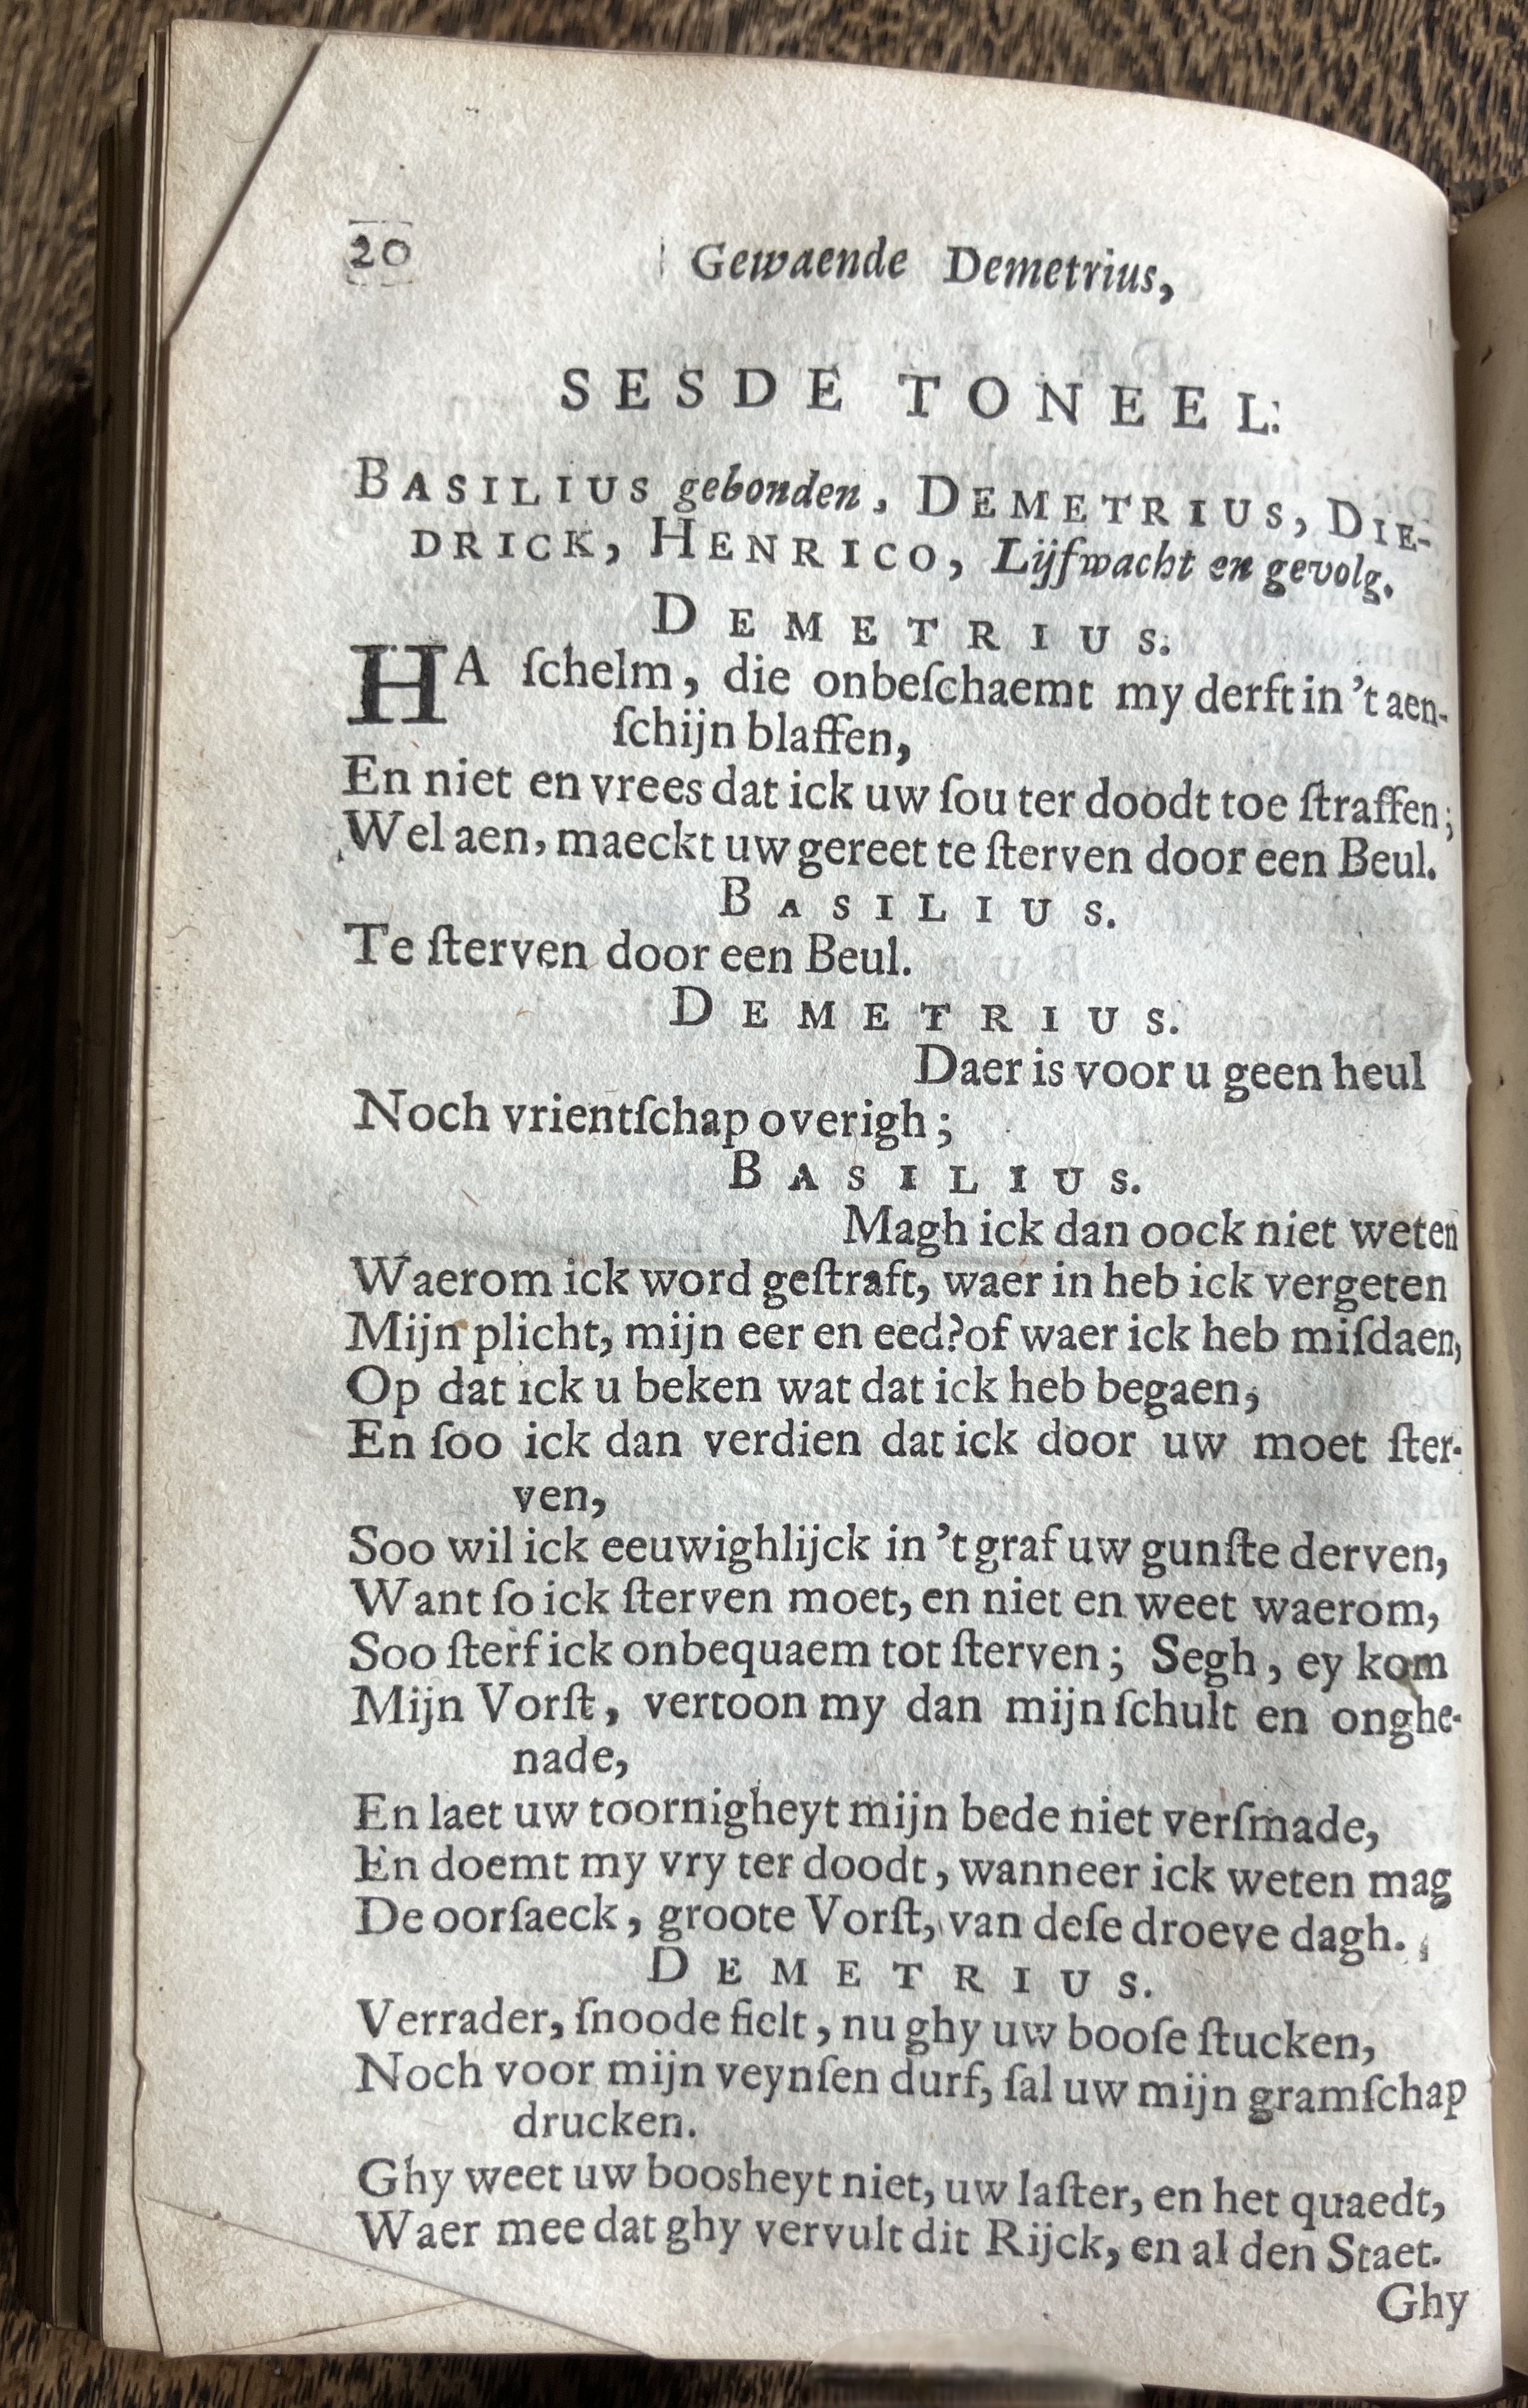 20 Gewaende Demetrius,
SESDE TONEEL.
BASILIUS gebonden, DEMETRIUS, DIE-
DRICK, HENRICO, Lijfwacht en gevolg.
DEMETRIUS.
HA ſchelm, die onbeſchaemt my derft in 't aen-
ſchijn blaffen,
En niet en vrees dat ick uw ſou ter doodt toe ſtraffen;
Wel aen, maeckt uw gereet te ſterven door een Beul.
BASILIUS.
Te ſterven door een Beul.
DEMETRIUS.
Daer is voor u geen heul
Noch vrientſchap overigh;
BASILIUS.
Magh ick dan oock niet weten
Waerom ick word geſtraft, waer in heb ick vergeten
Mijn plicht, mijn eer en eed? of waer ick heb miſdaen,
Op dat ick u beken wat dat ick heb begaen,
En ſoo ick dan verdien dat ick door uw moet ſter-
ven,
Soo wil ick eeuwighlijck in 't graf uw gunſte derven,
Want ſo ick ſterven moet, en niet en weet waerom,
Soo ſterf ick onbequaem tot ſterven; Segh, ey kom
Mijn Vorſt, vertoon my dan mijn ſchult en onghe-
nade,
En laet uw toornigheyt mijn bede niet verſmade,
En doemt my vry ter doodt, wanneer ick weten mag
De oorſaeck, groote Vorſt, van deſe droeve dagh.
DEMETRIUS.
Verrader, ſnoode fielt, nu ghy uw booſe ſtucken,
Noch voor mijn veynſen durf, ſal uw mijn gramſchap
drucken.
Ghy weet uw boosheyt niet, uw laſter, en het quaedt,
Waer mee dat ghy vervult dit Rijck, en al den Staet.
Ghy